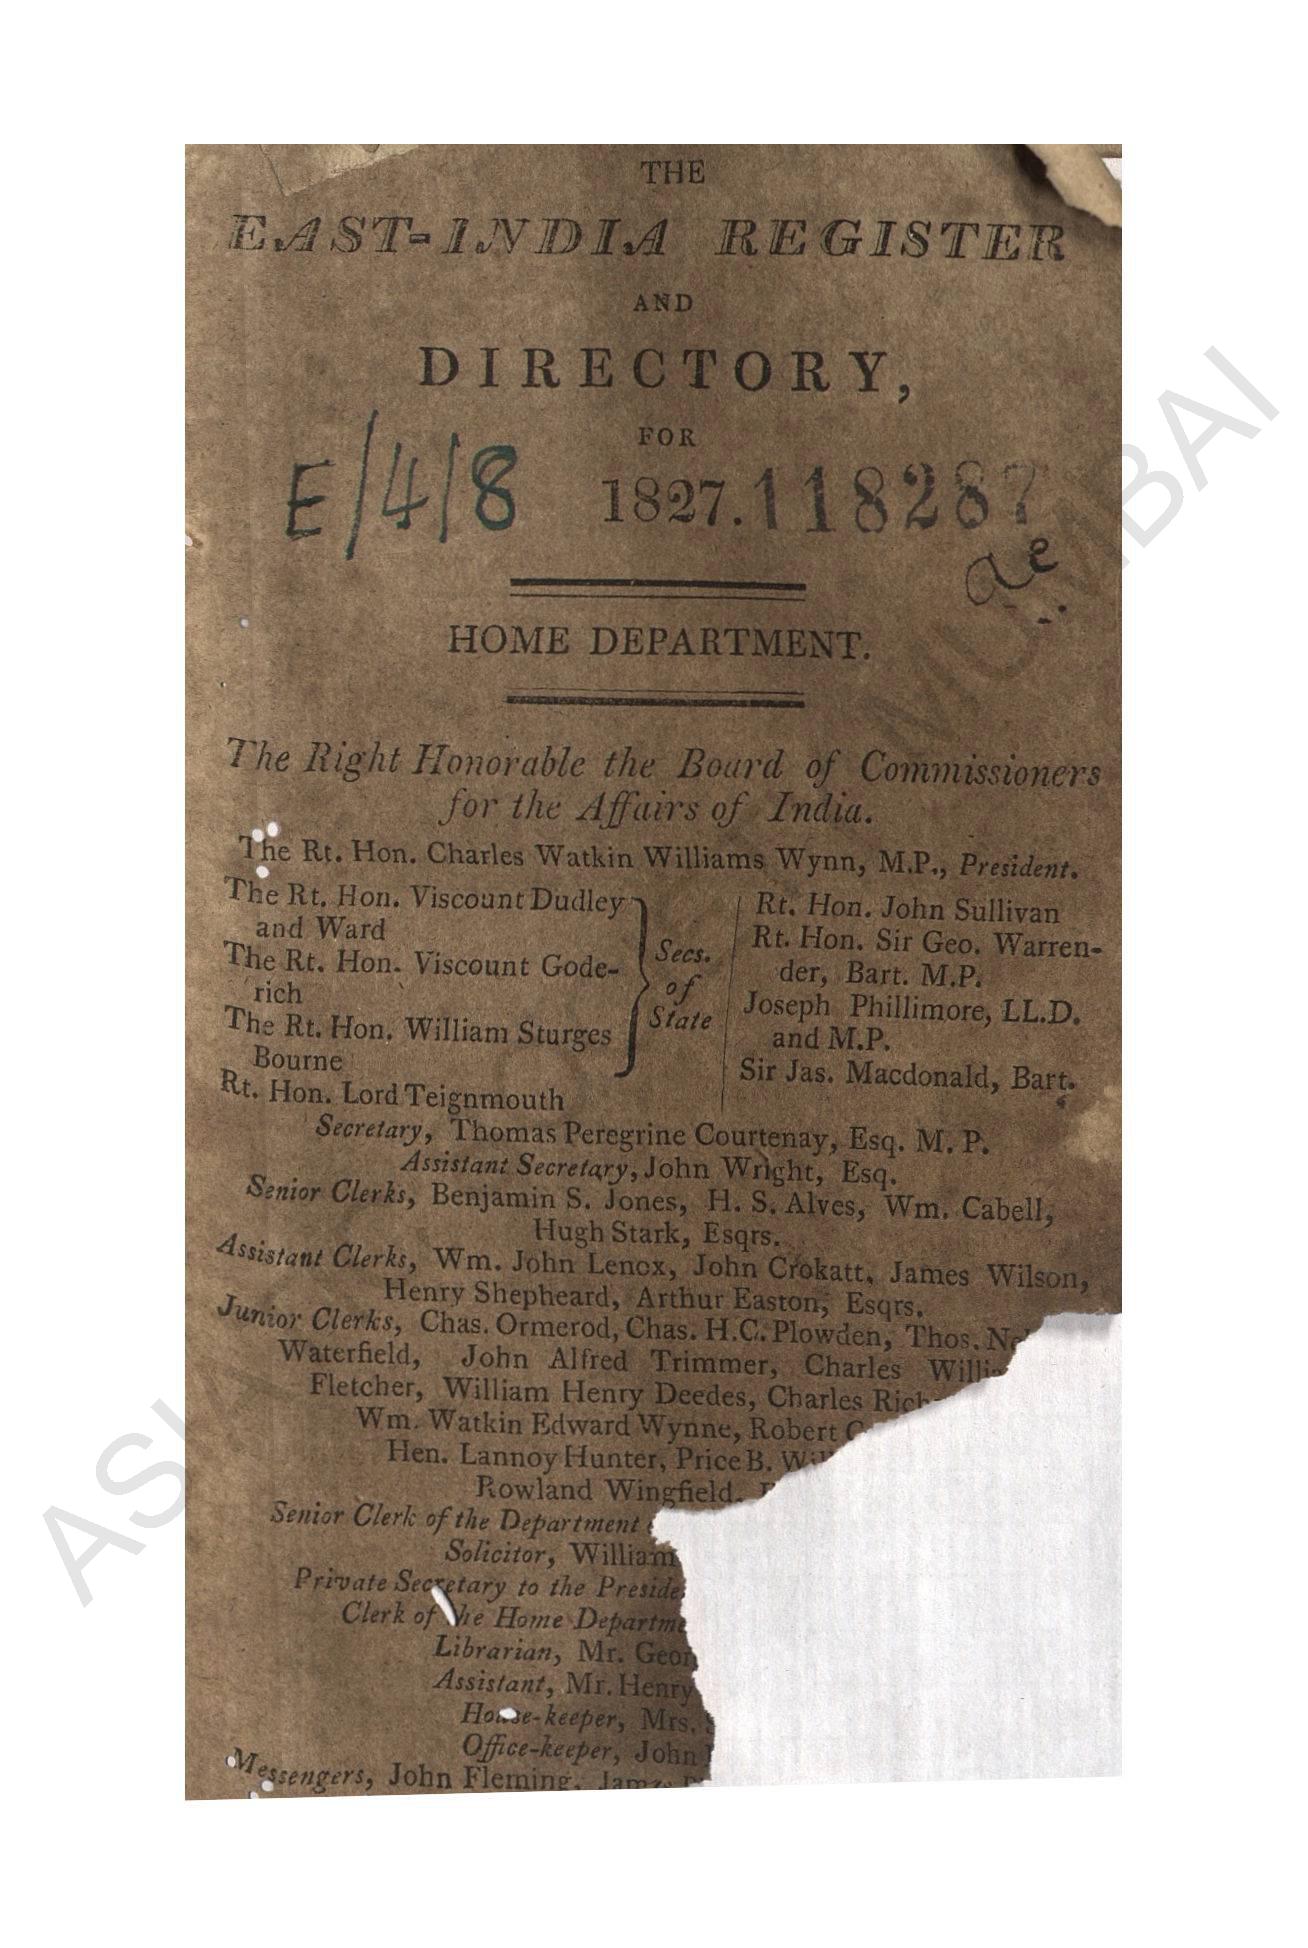 THE
EAST-INDIA REGISTER
AND
DIRECTORY,
FOR
E/4/8 1827. 118287
ae
HOME DEPARTMENT.
The Right Honorable the Board of Commissioners
for the Affairs of India.
The Rt. Hon. Charles Watkin Williams Wynn, M.P., President.
The Rt. Hon. Viscount Dudley
and Ward
The Rt. Hon. Viscount Gode-
rich
The Rt. Hon. William Sturges
Bourne
Secs.
of
State
Rt. Hon. Lord Teignmouth
Rt. Hon. John Sullivan
Rt. Hon. Sir Geo. Warren-
der, Bart. M.P.
Joseph Phillimore, LL.D.
and M.P.
Sir Jas. Macdonald, Bart.
Secretary, Thomas Peregrine Courtenay, Esq. M. P.
Assistant Secretary, John Wright, Esq.
Senior Clerks, Benjamin S. Jones, H. S. Alves, Wm. Cabell,
Hugh Stark, Esqrs.
Assistant Clerks, Wm. John Lenox, John Crokatt, James Wilson,
Henry Shepheard, Arthur Easton, Esqrs.
Junior Clerks, Chas. Ormerod, Chas. H.C. Plowden, Thos.
Waterfield, John Alfred Trimmer, Charles
Fletcher, William Henry Deedes, Charles
Wm. Watkin Edward Wynne, Robert
Hen. Lannoy Hunter, Price B.
Rowland Wingfield,
Senior Clerk of the Department
Solicitor, William
Private Secretary to the
Clerk of the Home
Librarian, Mr.
Assistant, Mr. Henry
House-keeper, Mrs.
Office-keeper, John
Messengers, John Fleming,
MUMBAI